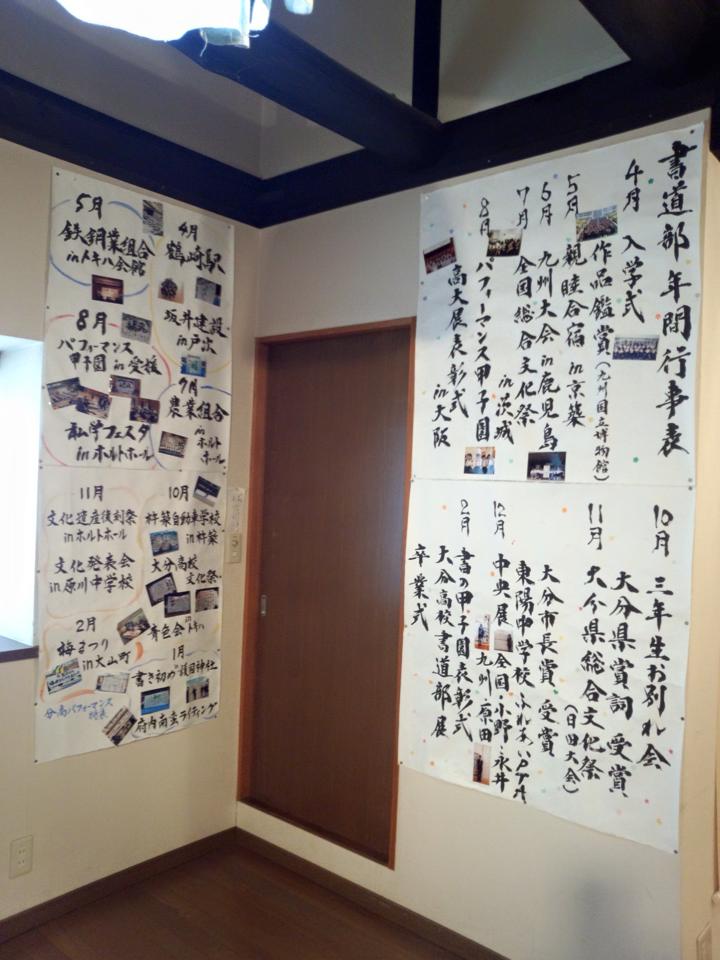 書道部年間行事表
4月 入学式
作品鑑賞(九州国立博物館)
5月 親睦合宿 in 京築
6月 九州大会 in 鹿児島
7月 全国総合文化祭
in 茨城
8月 パフォーマンス甲子園
高大展表彰式
in 大阪
10月 三年生お別れ会
大分県賞詞 受賞
11月 大分県総合文化祭
(日田大会)
大分市長賞 受賞
東陽中学校 ふれあいPTA
12月 中央展 全国 小野・永井
九州 原田
2月 書の甲子園表彰式
大分高校書道部展
卒業式
4月
鶴崎駅
5月
鉄鋼業組合
in トキハ会館
坂井建設
in 戸次
8月
パフォーマンス
甲子園 in 愛媛
7月
農業組合
in
ホルト
ホール
私学フェスタ
in ホルトホール
10月
杵築自動車学校
in 杵築
大分高校
文化祭
青色会 in トキハ
11月
文化遺産後刻祭
in ホルトホール
文化発表会
in 原川中学校
1月
書き初め 護国神社
府内南蛮ライティング
2月
梅まつり
in 大山町
分高パフォーマンス
発表